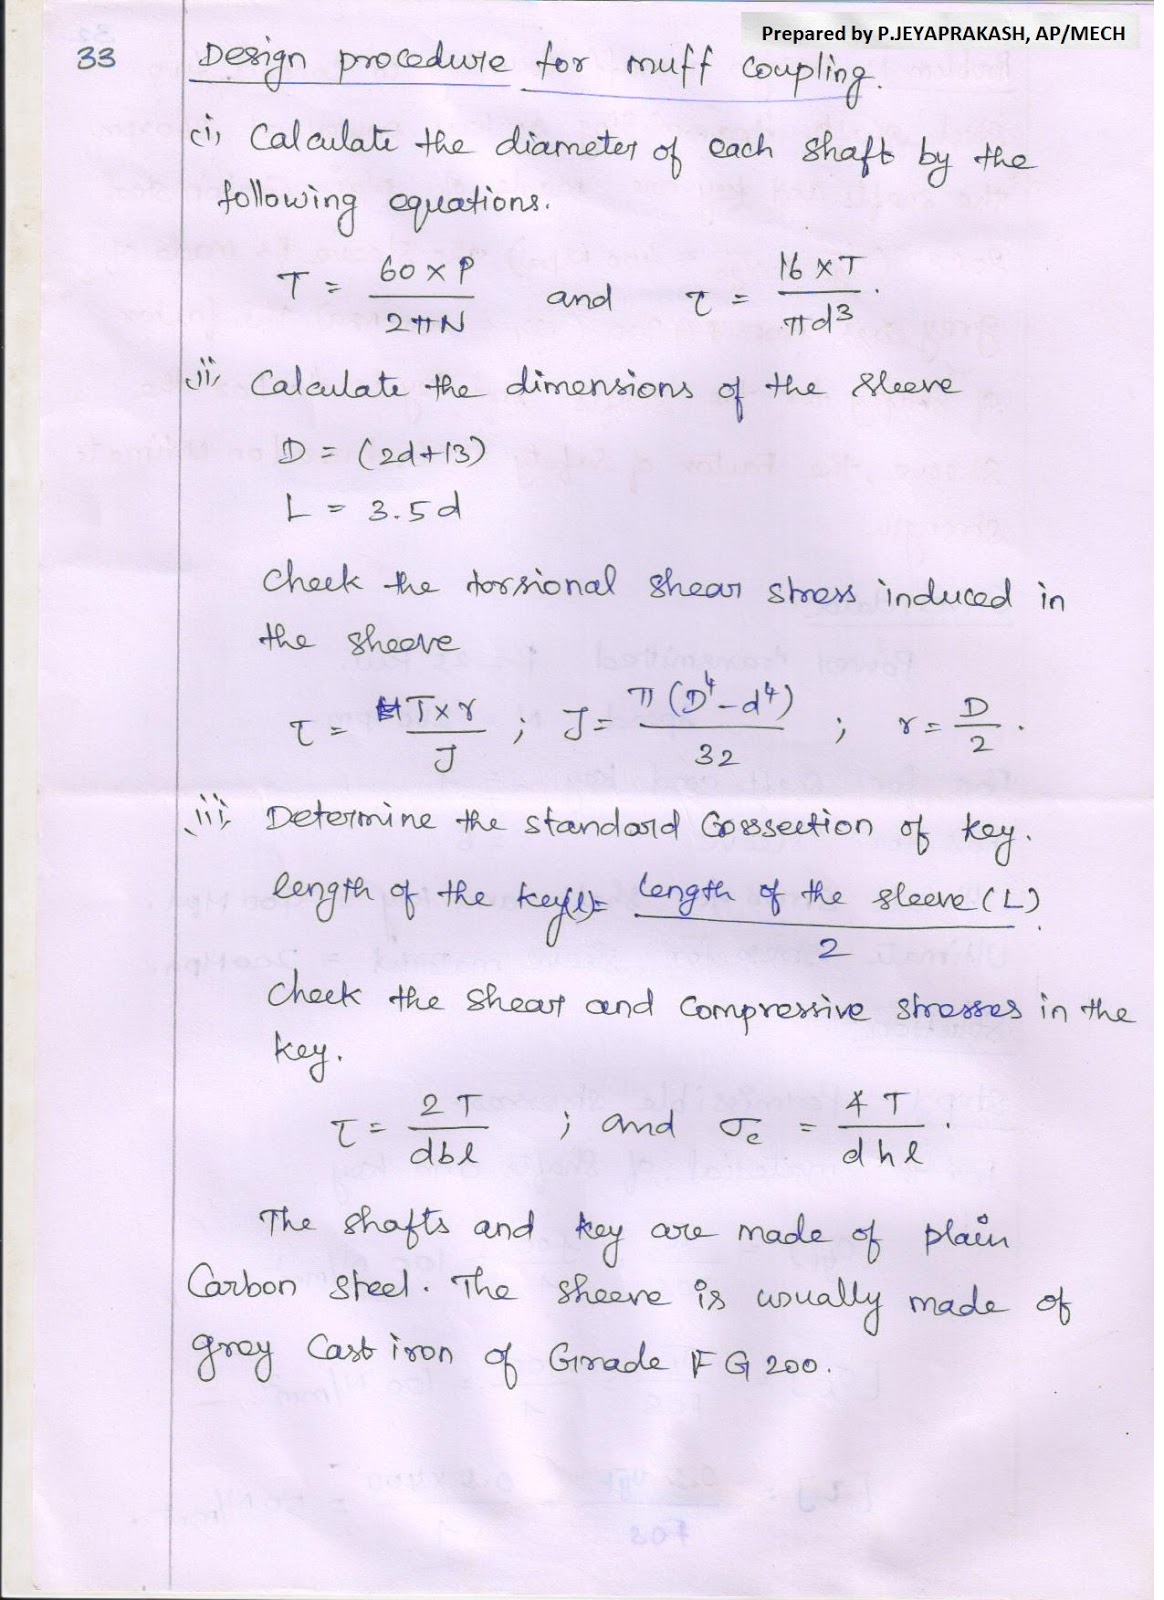 Prepared by P.JEYAPRAKASH, AP/MECH
33
Design procedure for muff coupling.
(i) Calculate the diameter of each shaft by the
following equations.
T = 60 × P / 2πN and τ = 16 × T / πd³.
(ii) Calculate the dimensions of the sleeve
D = (2d+13)
L = 3.5d
Check the torsional shear stress induced in
the sheeve
τ = T×r / J ; J = π(D⁴-d⁴) / 32 ; r = D / 2.
(iii) Determine the standard Crosssection of key.
length of the key(l) = length of the sleeve (L) / 2.
Check the shear and compressive stresses in the
key.
τ = 2T / dbl ; and σc = 4T / dhl.
The shafts and key are made of plain
Carbon steel. The sheeve is usually made of
grey Cast iron of Grade FG 200.